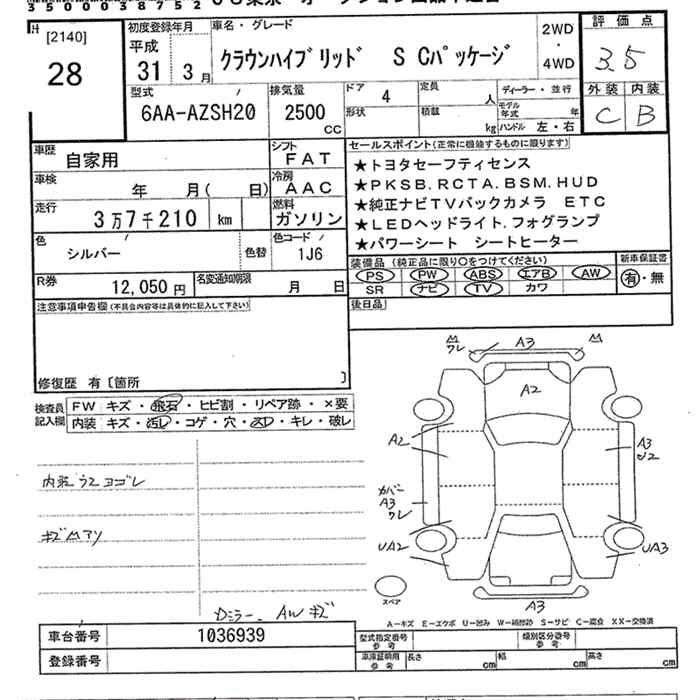 3500038752
[2140]
28
初度登録年月
平成
31 3月
車名・グレード
クラウンハイブリッド S Cパッケージ
2WD
・
4WD
評価点
3.5
外装 内装
C B
型式
6AA-AZSH20
排気量
2500
CC
ドア 4
形状
定員 人
積載 kg
ディーラー・並行
モデル年式 年
ハンドル 左・右
車歴 自家用
シフト FAT
車検 年 月( 日)
冷房 AAC
走行 3万7千210 km
燃料 ガソリン
色 シルバー 色替
色コード 1J6
R券 12,050円
名変通知期限 月 日
セールスポイント(正常に機能するものに限ります)
★トヨタセーフティセンス
★PKSB.RCTA.BSM.HUD
★純正ナビTVバックカメラ ETC
★LEDヘッドライト.フォグランプ
★パワーシート シートヒーター
装備品(純正品に限り○をつけてください)
PS PW ABS エアB AW
SR ナビ TV カワ
新車保証書
有・無
後日品
注意事項申告欄(不具合内容等は具体的に記入して下さい)
修復歴 有〔箇所 〕
検査員記入欄
FW キズ・飛石・ヒビ割・リペア跡・×要
内装 キズ・汚レ・コゲ・穴・スレ・キレ・破レ
内装ウス ヨゴレ
Dミラー、AWキズ
A3
ワレ
A2
A2
A3
U2
カバー
A3
ワレ
UA2
UA3
A3
スペア
A-キズ E-エクボ U-凹み W-補修跡 S-サビ C-腐食 XX-交換済
車台番号 1036939
登録番号
型式指定番号
参考
類別区分番号
参考
車庫証明用
参考
長さ cm
幅 cm
高さ cm